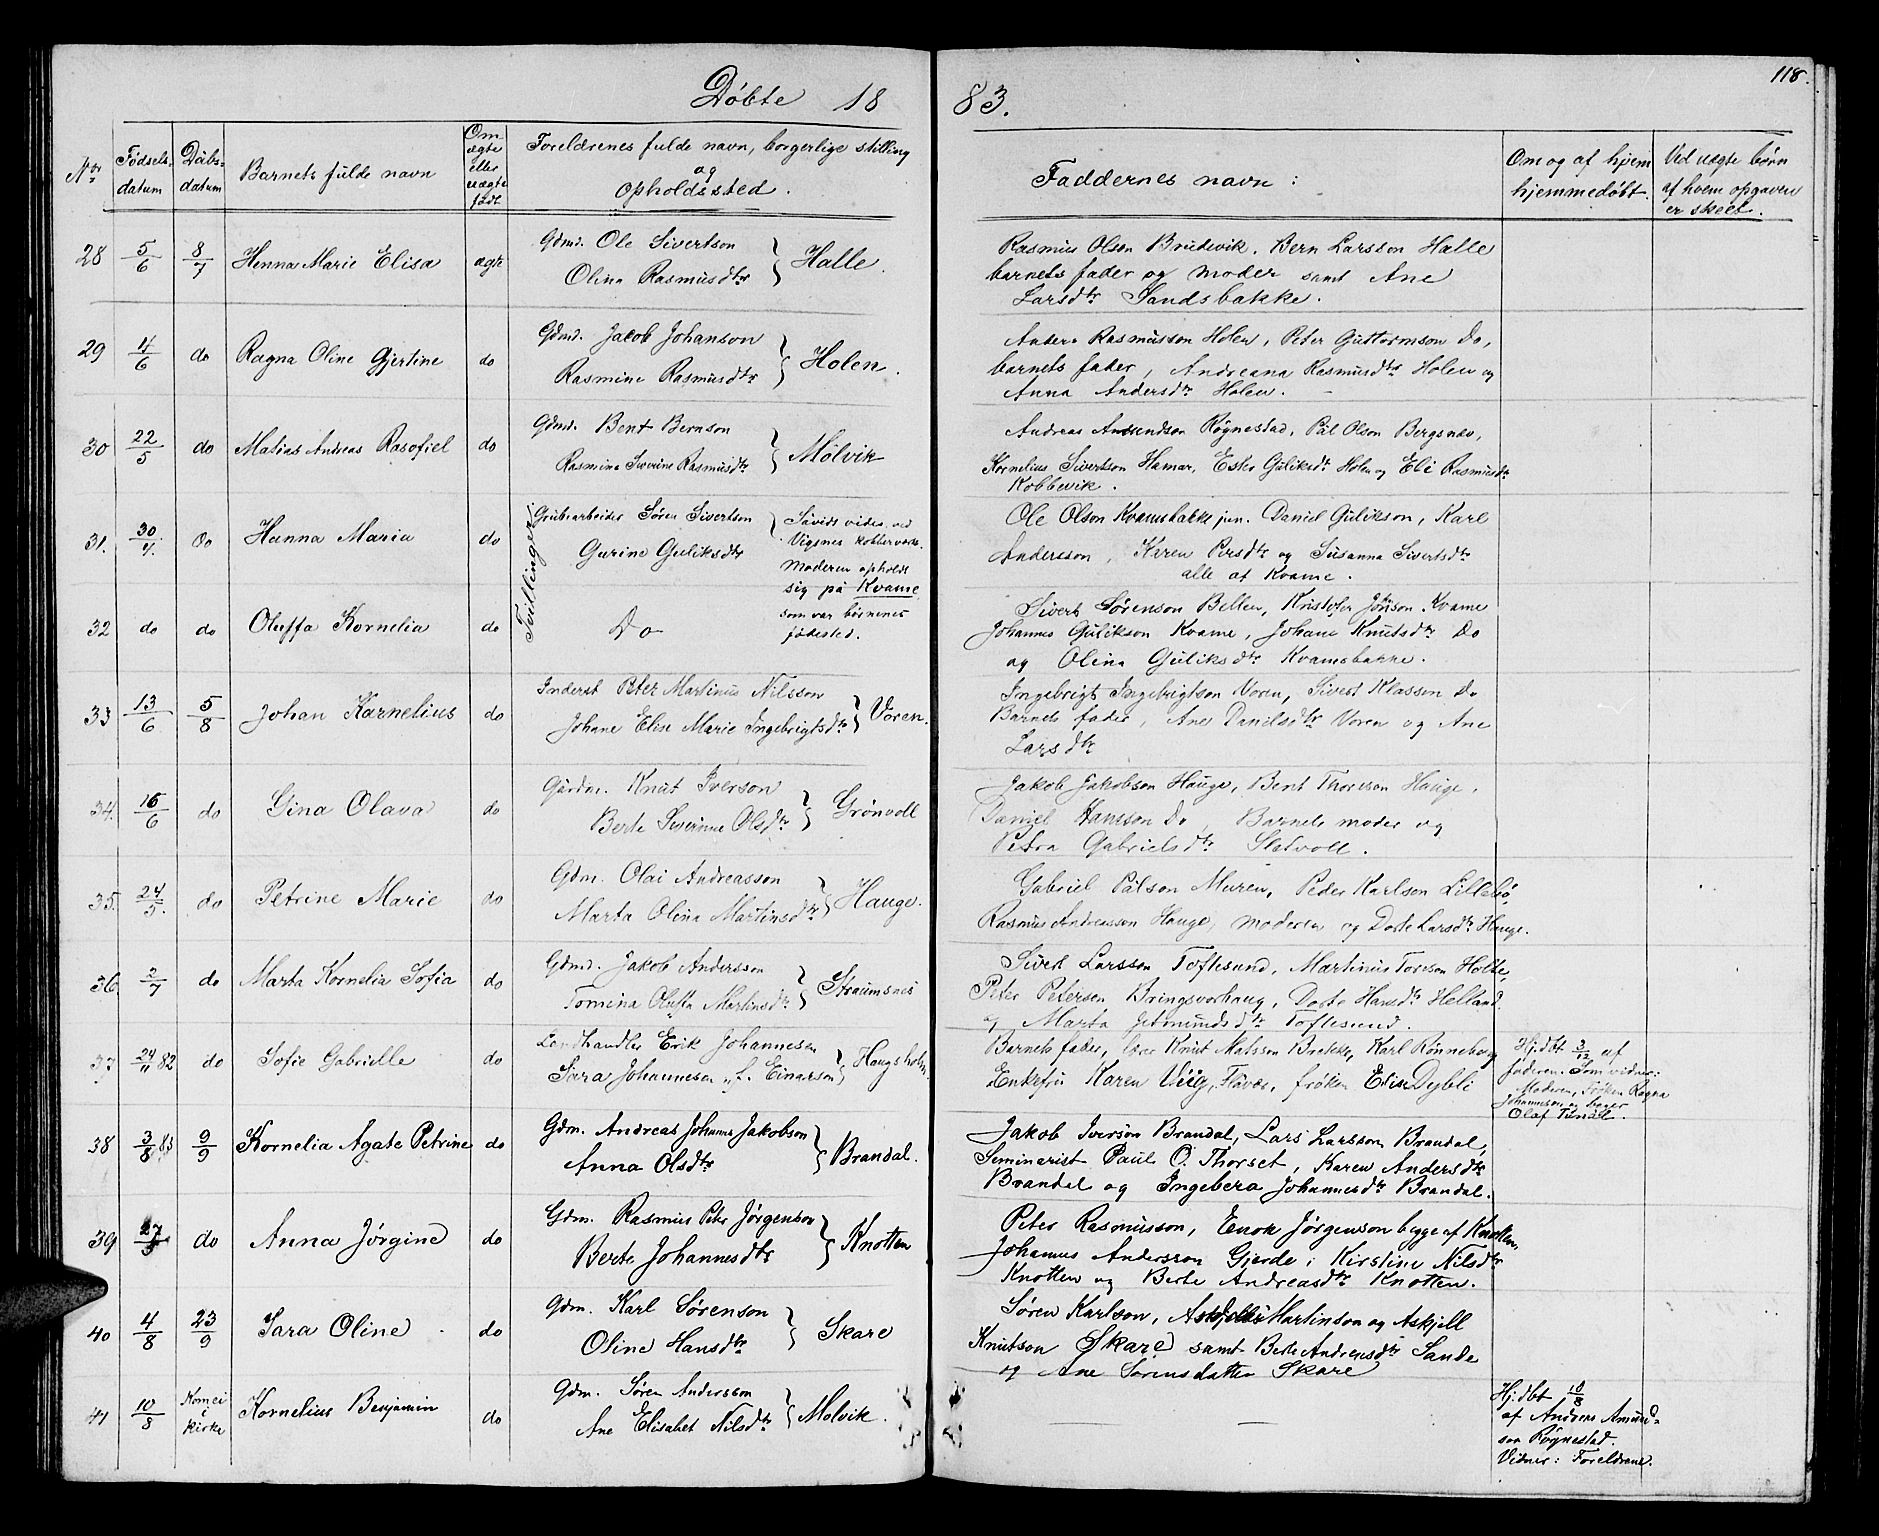 118.
Døbte 18
83.
No.
Fødsels-
datum
Dåbs-
datum
Barnets fulde navn
Om
ægte
eller
uægte
født
Forældrenes fulde navn, borgerlige stilling
og
opholdssted.
Faddernes navn:
Om og af hjem
hjemmedøbt.
Ved uægte børn
af hvem opgaven
er skeet.
28 5/6 8/7 Henna Marie Elisa ægte
Gdmd. Ole Sivertson
Olina Rasmusdtr } Halle.
Rasmus Olson Brudevik. Bern Larsson Halle
barnets fader og moder samt Ane
Larsdtr Sandsbakke.
29 11/6 do Ragna Oline Gjertine do
Gdmd. Jacob Johanson
Rasmine Rasmusdtr } Holen.
Anders Rasmusson Holen, Peter Guttormson Do,
barnets fader, Andreana Rasmusdtr Holen og
Anna Andersdtr Holen.
30 22/5 do Matias Andreas Rasofiel do
Gdmd. Bent Bernson
Rasmina Severine Rasmusdtr } Mølvik
Andreas Amundson Røgnestad, Pål Olson Bergsnæv,
Kornelius Sivertson Hamar, Ester Guliksdtr Holen og Eli Rasmusdtr
Kobbevik.
31. 30/4. Do Hanna Maria do
Tvillinger
Grubearbeider Søren Sivertson
Gurine Guliksdtr
Såvidt vides ved
Vigsnes kobberværk.
Moderen opholdt
sig på Kvame
som var børnenes
fødested.
Ole Olson Kvamsbakk jun. Daniel Gulikson, Karl
Andersson, Karen Persdtr og Susanna Sivertsdtr
alle af Kvame.
32 do do Oluffa Kornelia do
Do
Sivert Sørenson Belten, Kristofer Jonson Kvame
Johannes Gulikson Kvame, Johane Knutsdtr Do
og Olina Guliksdtr Kvamsbakke.
33 13/6 5/8 Johan Karnelius do
Inderst Peter Martinus Nilsson
Johane Elise Marie Ingebrigtsdtr } Voren.
Ingebrigt Ingebrigtson Voren, Sivert Klasson Do
Barnets fader, Ane Danielsdtr Voren og Ane
Larsdtr
34. 16/6 do Gina Olava do
Gårdm. Knut Iverson
Berte Siverine Olsdtr } Grønvoll
Jakob Jakobson Hauge, Bent Thoreson Hauge,
Daniel Hansson Do, Barnets moder og
Petra Gabrielsdtr Sletvoll.
35. 24/5. do Petrine Marie do
Gdm. Olai Andreasson
Marta Olina Martinsdtr } Hauge.
Gabriel Pålson Muren, Peder Karlson Lillebø,
Rasmus Andreasson Hauge, moderen og Dorte Larsdtr Hauge.
36 2/7 do Marta Kornelia Sofia do
Gdmd. Jakob Andersson
Tomina Oluffa Martinsdtr } Straumsnes
Sivert Larsson Toftesund, Martinus Toreson Holte,
Peter Petersen Bringsvorhaug, Dorte Hansdtr Helland
og Marta Jetmundsdtr Toftesund.
37 24/11 82 do Sofie Gabrielle do
Landhandler Erik Johannesen
Sara Johannesen, f. Einarson } Haugsholm
Barnets fader, Knut Matsson Brekke, Karl Rønneberg
Enkefru Karen Flaves, frøken Elise Dybli
Hj.dbt 3/12 af
faderen. Som vidner:
Moderen, Frøken Ragna
Johannesen og bager
Olaf
38 3/8 83 9/9 Kornelia Agate Petrine do
Gdm. Andreas Johannes Jakobson
Anna Olsdtr } Brandal.
Jakob Iverson Brandal, Lars Larsson Brandal,
Seminarist Paul O. Thorset, Karen Andersdtr
Brandal og Ingebera Johannesdtr Brandal.
39 27/ do Anna Jørgine do
Gdm. Rasmus Peter Jørgenson
Berte Johannesdtr } Knotten
Peter Rasmusson, Enok Jørgenson begge af Knotten,
Johannes Andersson Gjerde, Kirstine Nilsdtr
Knotten og Berte Andreasdtr Knotten.
40 4/8 23/9 Sara Oline do
Gdm. Karl Sørenson
Oline Hansdtr } Skare
Søren Karlson, Askjell Martinson og Askjell
Knutson Skare samt Berte Andreasdtr Sande
og Ane Sørensdatter Skare
41 10/8 Kom ei
i
kirke Kornelius Benjamin do
Gdm. Søren Andersson
Ane Elisabet Nilsdtr } Mølvik.
Hj. dbt 10/8
af Andreas Amund-
son Røgnestad.
Vidner: Forældrene.